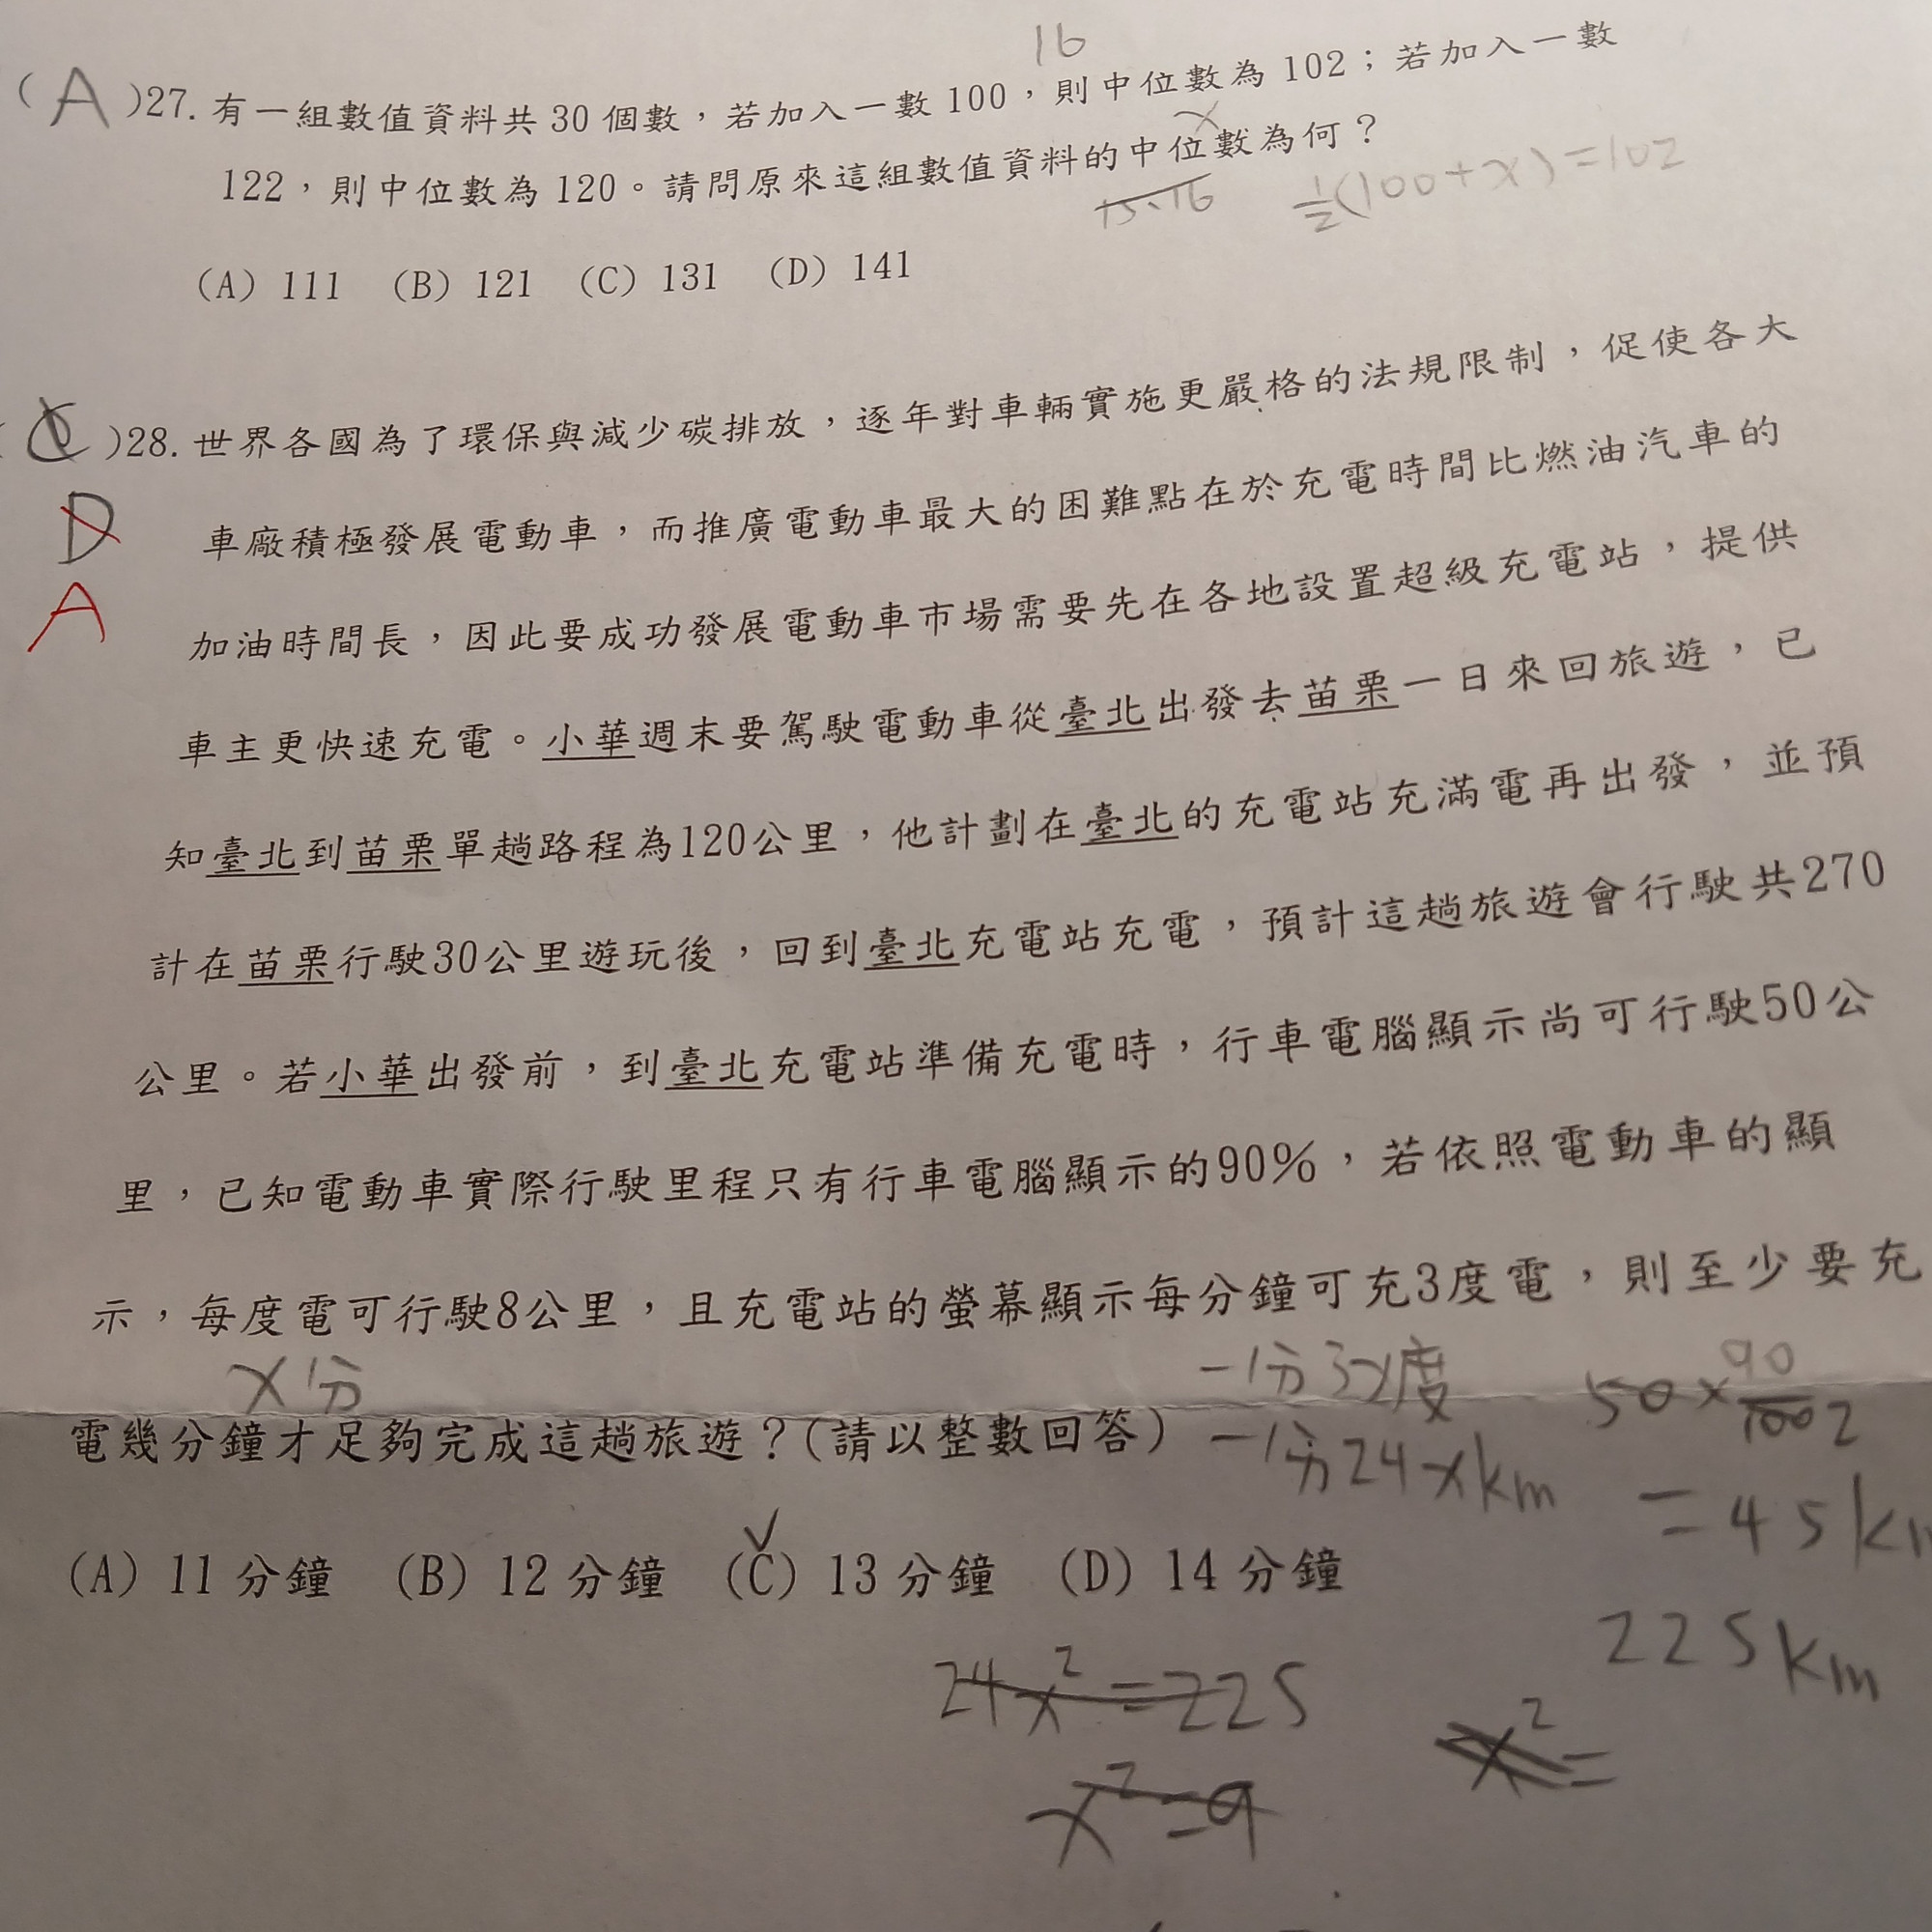 16
(A)27. 有一組數值資料共 30 個數，若加入一數 100，則中位數為 102；若加入一數
x
122，則中位數為 120。請問原來這組數值資料的中位數為何？
15、16 1/2(100+x)=102
(A) 111 (B) 121 (C) 131 (D) 141
( )28. 世界各國為了環保與減少碳排放，逐年對車輛實施更嚴格的法規限制，促使各大
D
車廠積極發展電動車，而推廣電動車最大的困難點在於充電時間比燃油汽車的
A
加油時間長，因此要成功發展電動車市場需要先在各地設置超級充電站，提供
車主更快速充電。小華週末要駕駛電動車從臺北出發去苗栗一日來回旅遊，已
知臺北到苗栗單趟路程為120公里，他計劃在臺北的充電站充滿電再出發，並預
計在苗栗行駛30公里遊玩後，回到臺北充電站充電，預計這趟旅遊會行駛共270
公里。若小華出發前，到臺北充電站準備充電時，行車電腦顯示尚可行駛50公
里，已知電動車實際行駛里程只有行車電腦顯示的90%，若依照電動車的顯
示，每度電可行駛8公里，且充電站的螢幕顯示每分鐘可充3度電，則至少要充
x分 一分3x度 50×90/100
電幾分鐘才足夠完成這趟旅遊？(請以整數回答) 一分24xkm
=45k
(A) 11 分鐘 (B) 12 分鐘 (C) 13 分鐘 (D) 14 分鐘
225km
24x²=225
x²=
x²=9